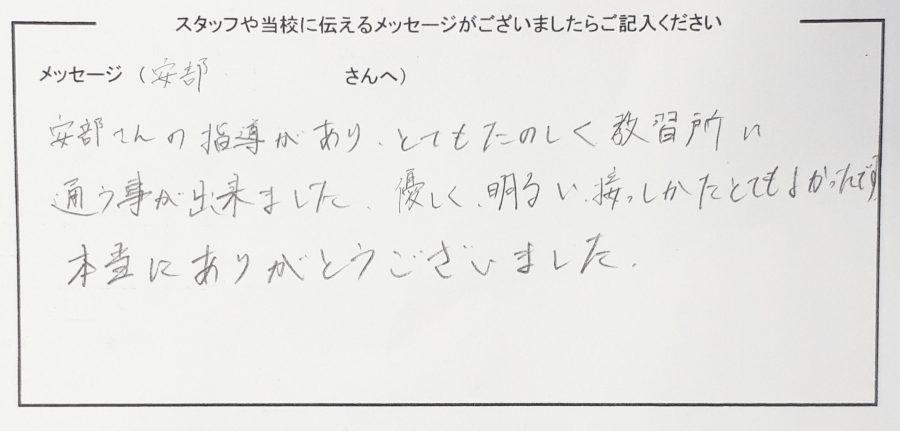 スタッフや当校に伝えるメッセージがございましたらご記入ください
メッセージ（安部 さんへ）
安部さんの指導があり、とてもたのしく教習所に
通う事が出来ました、優しく、明るい、接っしかたとてもよかったです
本当にありがとうございました。